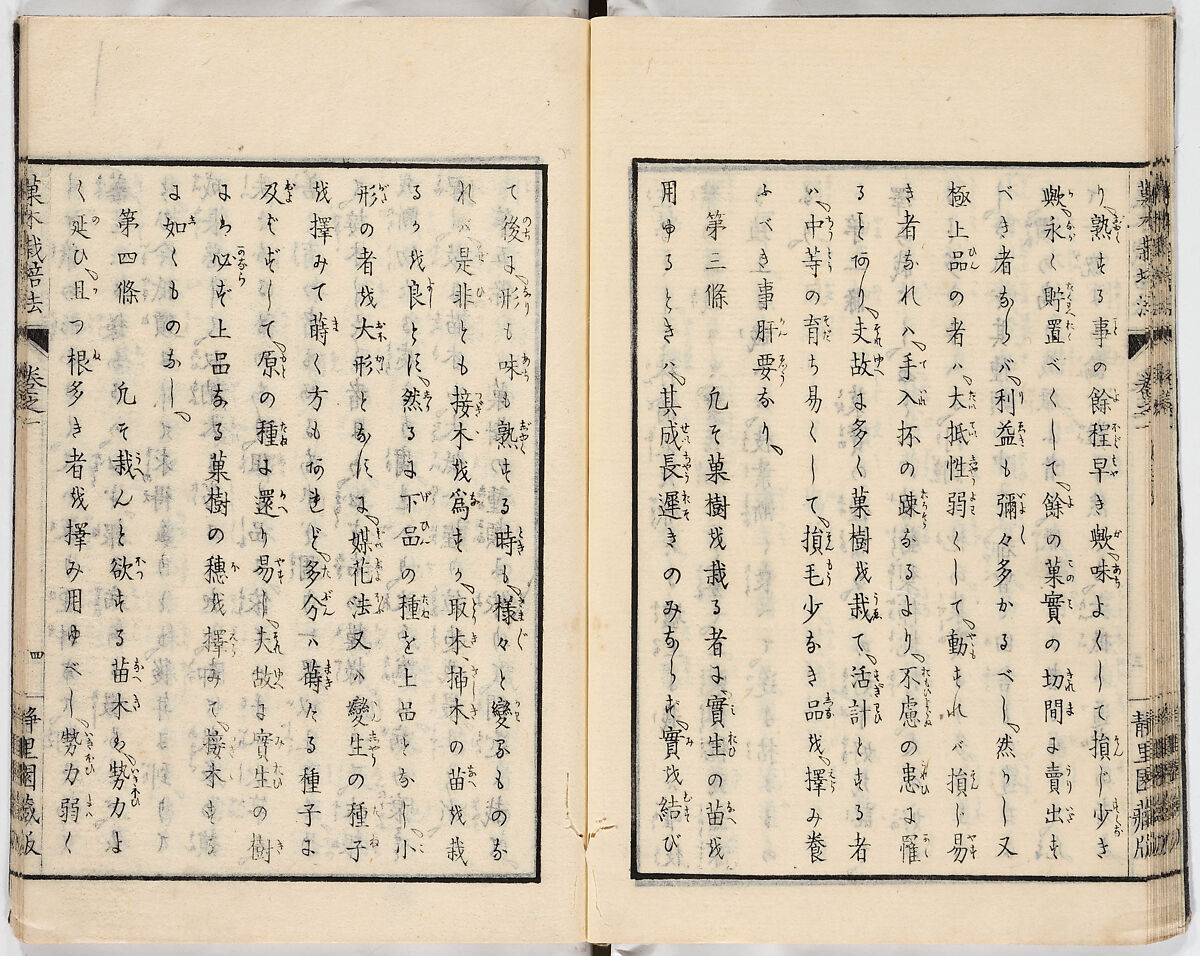 り熟する事の餘程早き歟味よくして損じ少き
歟永く貯置べくして餘の菓實の切間に賣出す
べき者ならバ利益も彌々多かるべし然りし又
極上品の者ハ大抵性弱くして動もすれバ損じ易
き者なれハ手入抔の踈なるより不慮の患に罹
ると有り夫故に多く菓樹を栽て活計とする者
ハ中等の育ち易くして損毛少なき品を擇み養
ふべき事肝要なり
第三條 凢そ菓樹を栽る者に實生の苗を
用ゆるときハ其成長遲きのみならず實を結び
て後に形も味も熟する時も樣々と變るものな
れバ是非とも接木を爲すか取木挿木の苗を栽
るを良とす然るに下品の種を上品となし小
形の者を大形となすに媒花法又ハ變生の種子
を擇みて蒔く方もあれど多分ハ蒔たる種子に
及ばずして原の種に還り易し夫故に實生の樹
にハ必ず上品なる菓樹の穗を擇みて接木する
に如くものなし
第四條 凢そ栽んと欲する苗木ハ勢力よ
く延ひ且つ根多き者を擇み用ゆべし勢力弱く
菓木栽培法 卷之一 四 静里園藏版